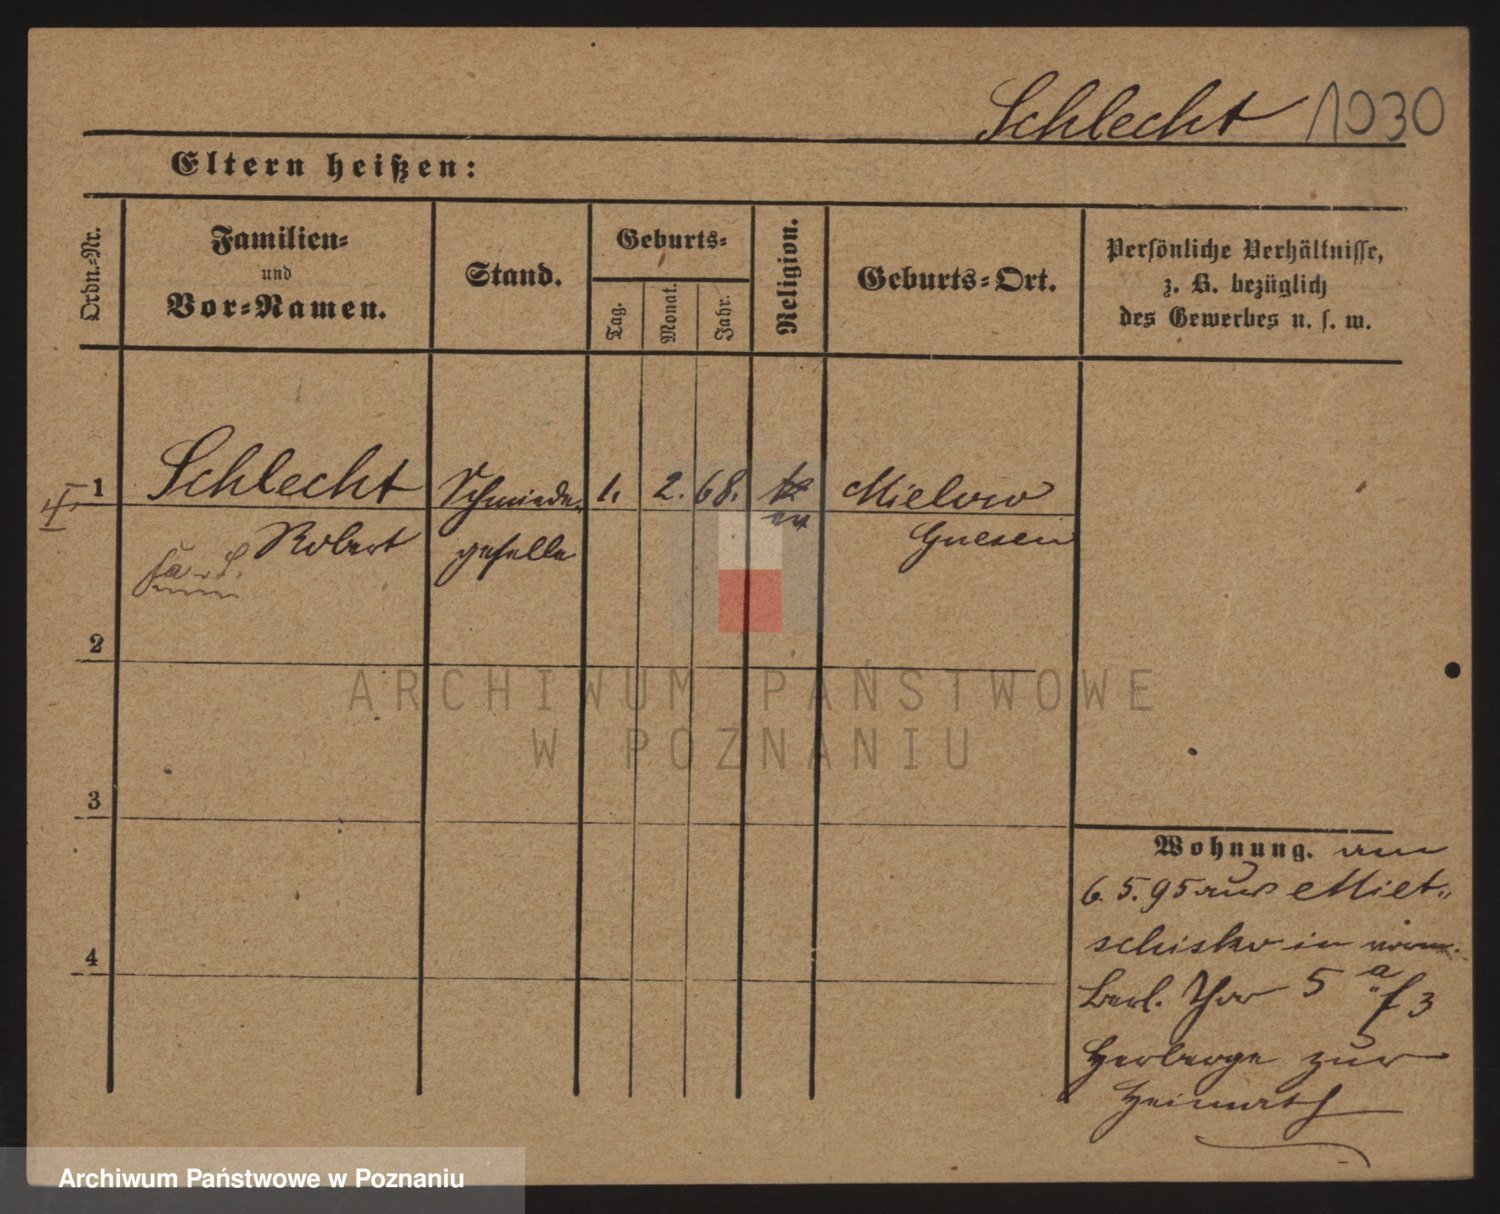 Schlecht 1030
Eltern heißen:
Ordn.-Nr.
Familien-
und
Vor-Namen.
Stand.
Geburts-
Tag.
Monat.
Jahr.
Religion.
Geburts-Ort.
Persönliche Verhältnisse,
z. B. bezüglich
des Gewerbes u. s. w.
1 Schlecht Schmiede- 1. 2. 68. Mielno
Robert geselle ev Gnesen
2
3
4
Wohnung. am
6. 5. 95 aus Miet-
schisko in
Berl. Thor 5 a f 3
Herberge zur
Heimath
ARCHIWUM PAŃSTWOWE
W POZNANIU
Archiwum Państwowe w Poznaniu